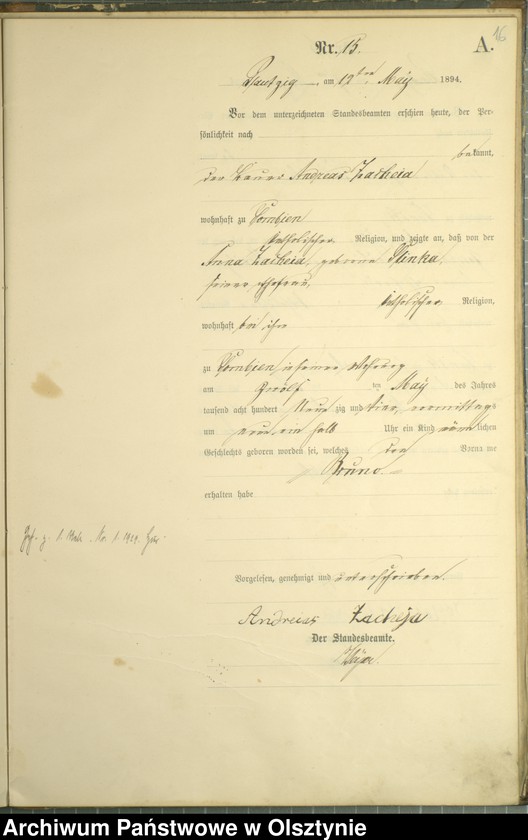 16
Nr. 15.
A.
am 12ten May 1894.
Vor dem unterzeichneten Standesbeamten erschien heute, der Per-
sönlichkeit nach
bekannt,
der Bauer Andreas Zacheia
wohnhaft zu
katholischer Religion, und zeigte an, daß von der
Anna Zacheia, geborene
seiner Ehefrau,
katholischer Religion,
wohnhaft bei ihm
zu in seiner Wohnung
am Zwölf ten May des Jahres
tausend acht hundert Neun zig und vier, vormittags
um neun ein halb Uhr ein Kind männlichen
Geschlechts geboren worden sei, welches den Vorname
Bruno
erhalten habe
Vorgelesen, genehmigt und unterschrieben.
Andreas Zacheja
Der Standesbeamte.
Archiwum Państwowe w Olsztynie